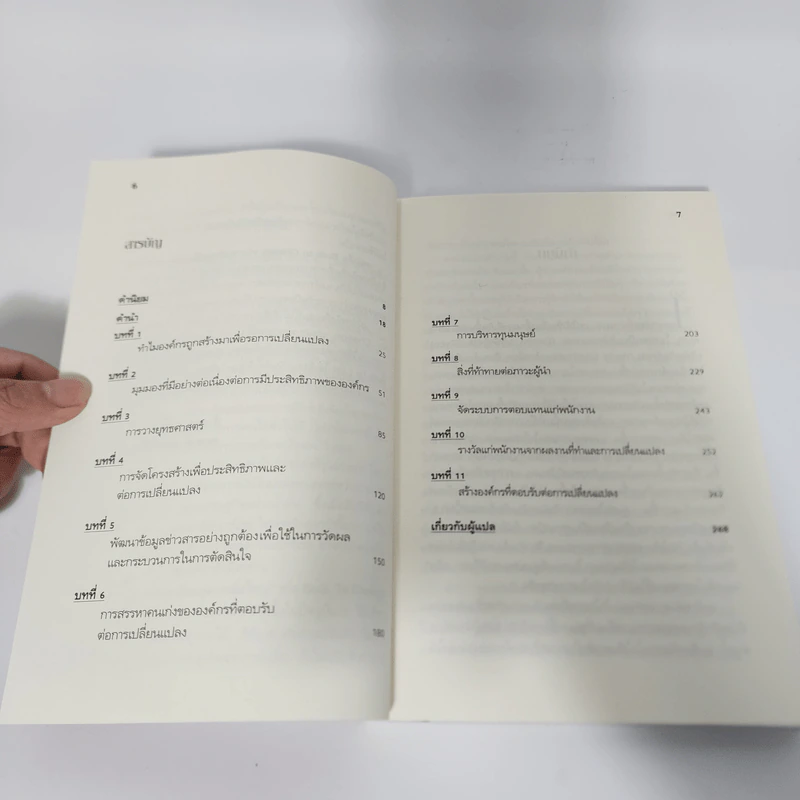 6
สารบัญ
คำนิยม 8
คำนำ 18
บทที่ 1
ทำไมองค์กรถูกสร้างมาเพื่อรอการเปลี่ยนแปลง 25
บทที่ 2
มุมมองที่มีอย่างต่อเนื่องต่อการมีประสิทธิภาพขององค์กร 51
บทที่ 3
การวางยุทธศาสตร์ 85
บทที่ 4
การจัดโครงสร้างเพื่อประสิทธิภาพและ
ต่อการเปลี่ยนแปลง 120
บทที่ 5
พัฒนาข้อมูลข่าวสารอย่างถูกต้องเพื่อใช้ในการวัดผล
และกระบวนการในการตัดสินใจ 150
บทที่ 6
การสรรหาคนเก่งขององค์กรที่ตอบรับ
ต่อการเปลี่ยนแปลง 180
7
บทที่ 7
การบริหารทุนมนุษย์ 203
บทที่ 8
สิ่งที่ท้าทายต่อภาวะผู้นำ 229
บทที่ 9
จัดระบบการตอบแทนแก่พนักงาน 243
บทที่ 10
รางวัลแก่พนักงานจากผลงานที่ทำและการเปลี่ยนแปลง
บทที่ 11
สร้างองค์กรที่ตอบรับต่อการเปลี่ยนแปลง
เกี่ยวกับผู้แปล